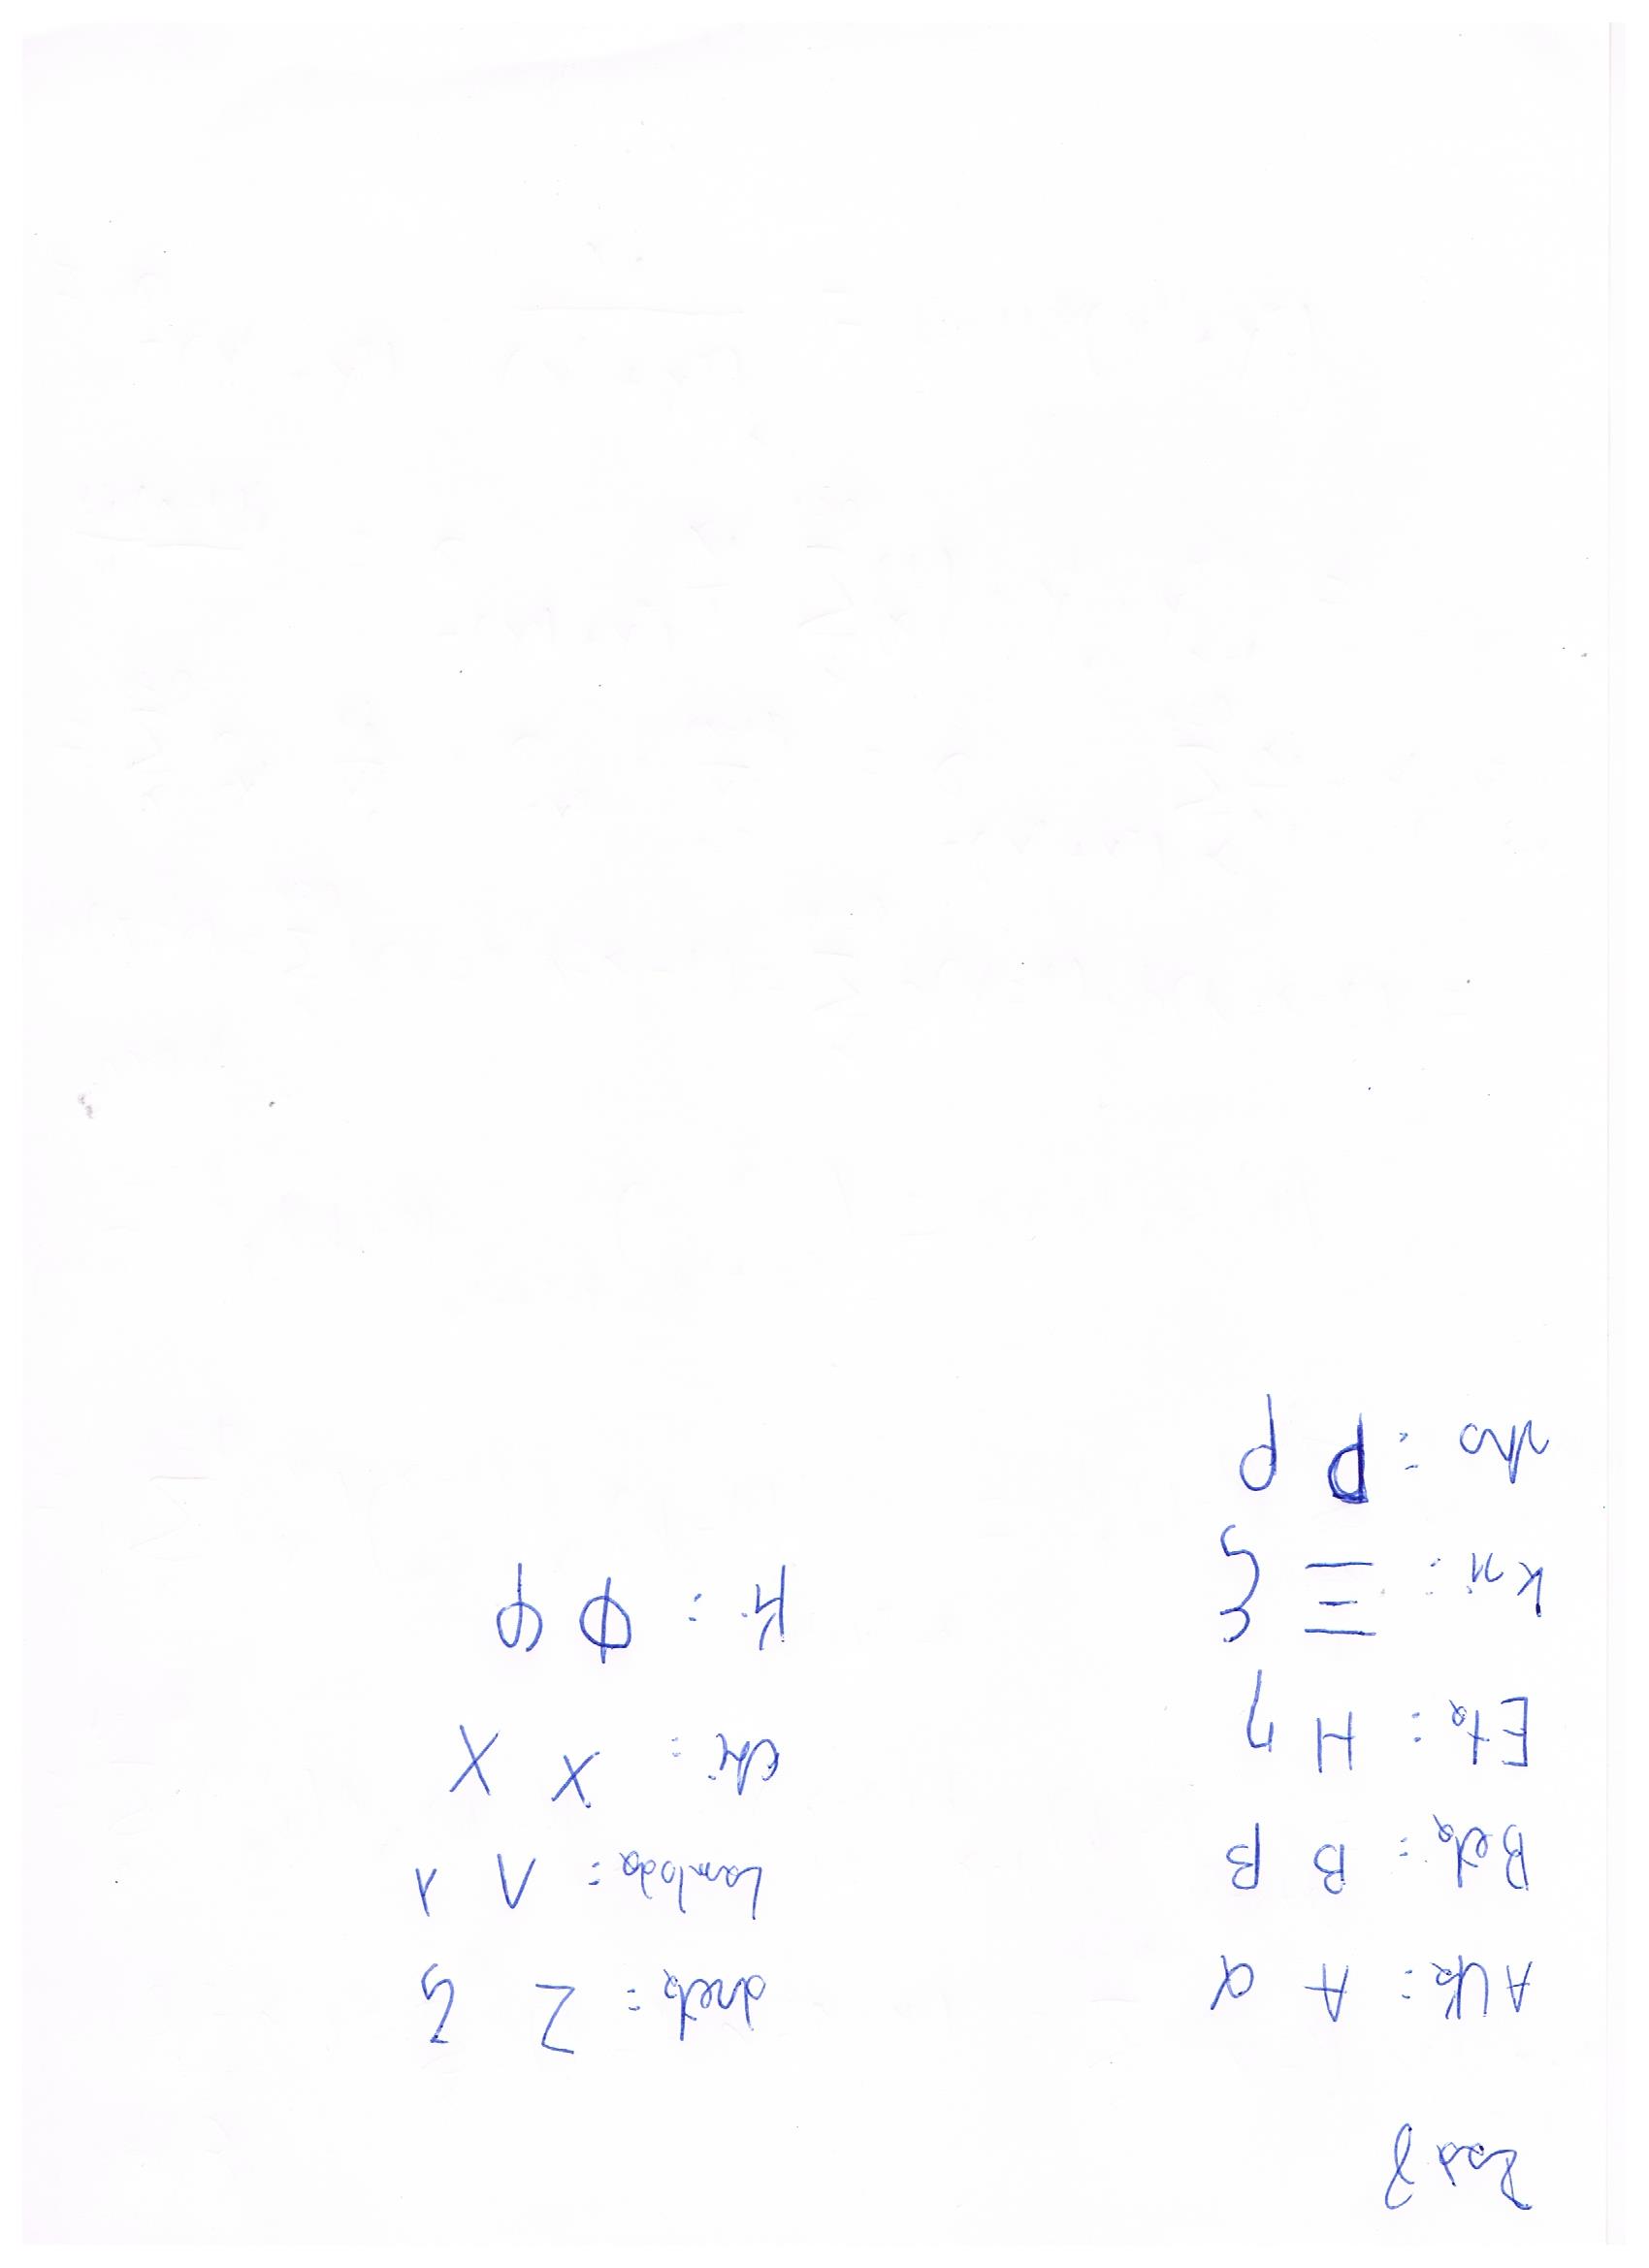 Zad 8
Alfa: Α α
Beta: Β β
Eta: Η η
ksi: Ξ ξ
rho: Ρ ρ
dzeta: Ζ ζ
Lambda: Λ λ
chi: Χ χ
fi: Φ φ